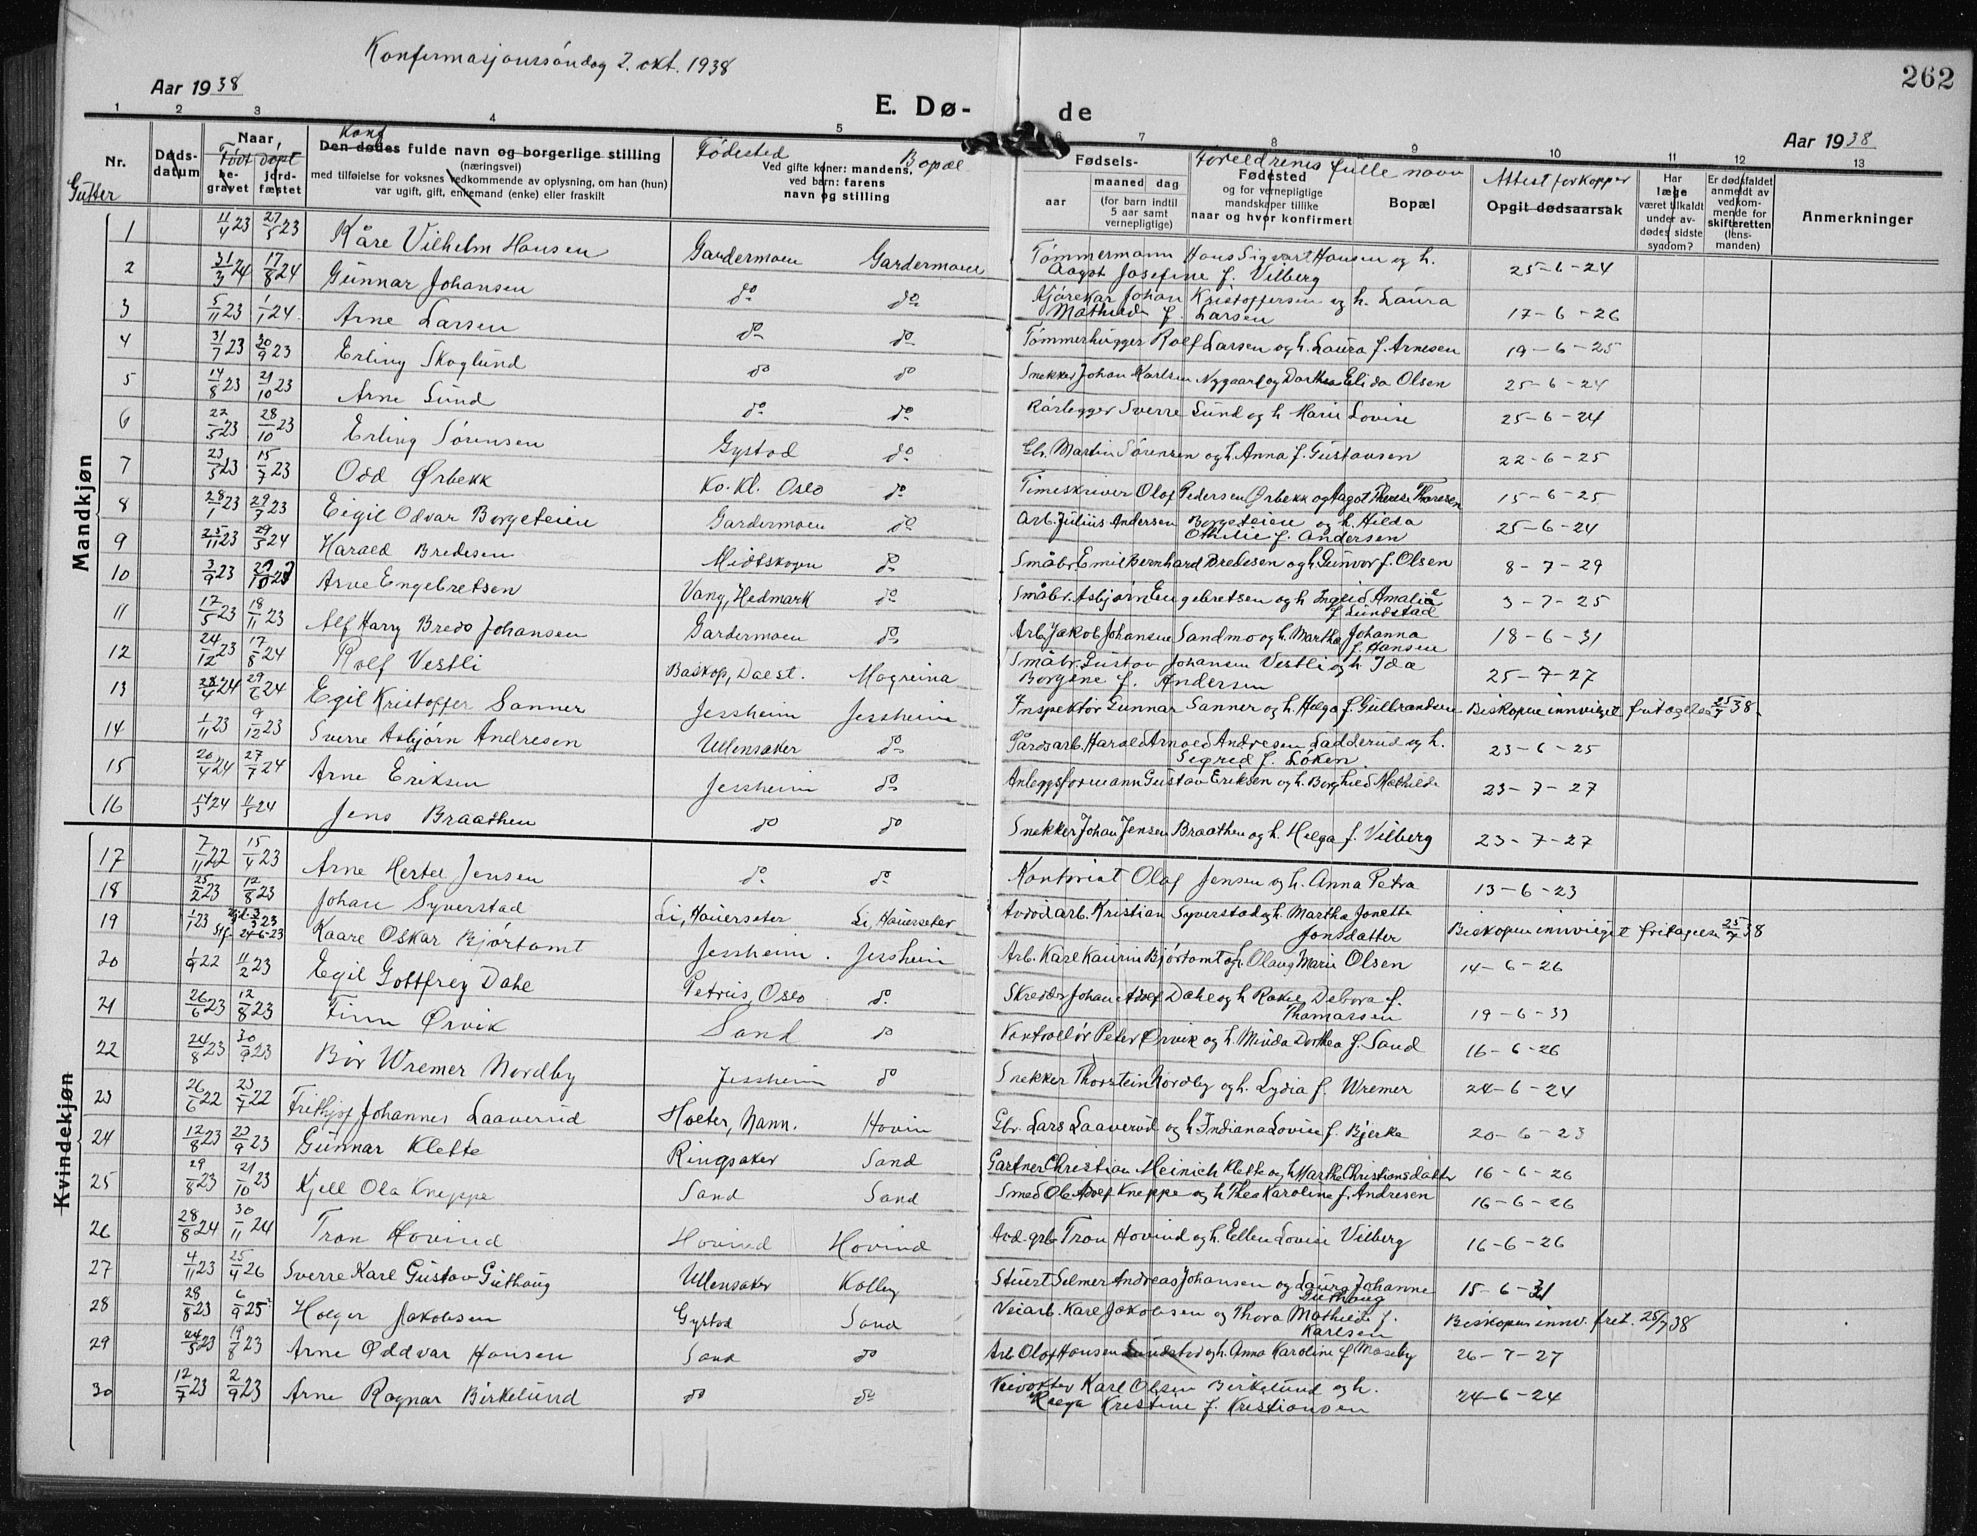 Konfirmasjonssöndag 2. okt. 1938
262
Aar 1938
E. Dø-
de
Aar 1938
1 2 3 4 5 6 7 8 9 10 11 12 13
Nr.
Gutter
Døds-
datum
Naar
Født døpt
be-
gravet
jord-
fæstet
Konf
Den dødes fulde navn og borgerlige stilling
(næringsvei)
med tilføielse for voksnes vedkommende av oplysning, om han (hun)
var ugift, gift, enkemand (enke) eller fraskilt
Födested Bopæl
Ved gifte koner: mandens,
ved børn: farens
navn og stilling
Fødsels-
aar
maaned dag
(for barn indtil
5 aar samt
vernepligtige)
Foreldrenes fulle navn
Fødested
og for vernepligtige
mandskaper tillike
naar og hvor konfirmert
Bopæl
Attest for kopper
Opgit dødsaarsak
Har
læge
været tilkaldt
under av-
dødes sidste
sygdom?
Er dødsfaldet
anmeldt av
vedkom-
mende for
skifteretten
(lens-
manden)
Anmerkninger
Mandkjøn
1 11/4 23 27/5 23 Kåre Vilhelm Hansen Gardermoen Gardermoen Tømmermann Hans Sigvart Hansen og h. Aagot Josefine f. Vilberg 25-6-24
2 31/3 24 17/8 24 Gunnar Johansen do do Kjørekar Johan Kristoffersen og h. Laura Mathilde f. Larsen 17-6-26
3 5/11 23 1/1 24 Arne Larsen do do Tømmerhugger Rolf Larsen og h. Laura f. Arnesen 19-6-25
4 31/7 23 30/9 23 Erling Skoglund do do Snekker Johan Karlsen Nygaard og Dorthea Elida Olsen 25-6-24
5 14/8 23 21/10 23 Arne Lund do do Rørlegger Sverre Lund og h Marie Lovise 25-6-24
6 22/5 23 28/10 23 Erling Sørensen Gystad do Gbr. Martin Sørensen og h. Anna f. Gustavsen 22-6-25
7 23/3 23 15/7 23 Odd Ørbekk Kv. Kl. Oslo do Timeskriver Olof Pedersen Ørbekk og Aagot Therese Thoresen 15-6-25
8 28/1 23 29/7 23 Eigil Odvar Borgeteien Gardermoen do Arb. Julius Andersen Borgeteien og h. Hilda Othilie f. Andersen 25-6-24
9 25/11 23 29/5 24 Harald Bredesen Midtskogen do Småbr. Emil Bernhard Bredesen og h Gunvor f. Olsen 8-7-29
10 3/9 23 27/10 23 Arve Engebretsen Vang, Hedmark do Småbr. Asbjørn Engebretsen og h Ingrid Amalie f. Lundstad 3-7-25
11 17/5 23 18/11 23 Alf Harry Bredo Johansen Gardermoen do Arb. Jakob Johansen Sandmo og h. Martha Johanna f. Hansen 18-6-31
12 24/12 23 17/8 24 Rolf Vestli Baskop, Dalst. Mogreina Småbr. Gustav Johansen Vestli og h Ida Borgine f. Andersen 25-7-27
13 28/4 24 29/6 24 Egil Kristoffer Sanner Jessheim Jessheim Inspektør Gunnar Sanner og h. Helga f. Gulbrandsen Biskopen innvilget fritagelse 25/7 38.
14 1/11 23 9/12 23 Sverre Asbjørn Andresen Ullensaker do Gårdsarb. Harald Arnold Andresen Ladderud og h. Sigrid f. Løken. 23-6-25
15 20/4 24 27/7 24 Arne Eriksen Jessheim do Anleggsformann Gustav Eriksen og h. Borghild Mathilde 23-7-27
16 14/3 24 11/5 24 Jens Braathen do do Snekker Johan Jensen Braathen og h. Helga f. Vilberg 23-7-27
Kvindekjøn
17 7/11 22 15/4 23 Arne Hertel Jensen do do Kontorist Olaf Jensen og h. Anna Petra 13-6-23
18 25/2 23 12/8 23 Johan Syverstad Li, Hauerseter Li, Hauerseter Avdød arb. Kristian Syverstad og h. Martha Jonette Jonsdatter Biskopen innvilget fritagelse 25/7 38
19 1/1 23 Hjd. 3/3 23 Stf. 24-6-23 Kaare Oskar Bjørtomt Jessheim. Jessheim Arb. Karl Kaurin Bjørtomt og h. Olaug Marie Olsen 14-6-26
20 1/9 22 11/2 23 Egil Gottfrey Dahl Petrus, Oslo do. Skredder Johan Adolf Dahl og h Rakel Debora f. Thomassen 19-6-33
21 26/6 23 12/8 23 Finn Ørvik Sand do Kontrollør Peter Ørvik og h. Minda Dorthea f. Sand 16-6-26
22 24/8 23 30/9 23 Bör Wremer Nordby Jessheim do Snekker Thorstein Nordby og h. Lydia f. Wremer 24-6-24
23 26/6 22 23/7 22 Frithjof Johannes Laaverud Holter, Nann. Hovin Gbr. Lars Laaverud og h Indiana Lovise f. Bjerke 20-6-23
24 12/8 23 23/9 23 Gunnar Klette Ringsaker Sand Gartner Christian Meinich Klette og h Marthe Christiansdatter 16-6-26
25 29/8 23 21/10 23 Kjell Ola Kneppe Sand Sand Smed Ole Adolf Kneppe og h Thea Karoline f. Andresen 16-6-26
26 28/8 24 30/11 24 Tron Hovind Hovind Hovind Avd. grb. Tron Hovind og h. Ellen Lovise Vilberg 16-6-26
27 4/11 23 25/4 26 Sverre Karl Gustav Guthaug Ullensaker Kolby Stuert Selmer Andreas Johansen og Laura Johanne Guthaug 15-6-31
28 28/8 23 6/9 25 Holger Jakobsen Gystad Sand Veiarb. Karl Jakobsen og Thora Mathilde f. Karlsen Biskopen innv. frit. 25/7 38
29 24/5 23 19/8 23 Arne Oddvar Hansen Sand do Arb Olaf Hansen Lundsted og h. Anna Karoline f Moseby 26-7-27
30 12/7 23 2/9 23 Arne Ragnar Birkelund do do Veivokter Karl Olsen Birkelund og h. Helga Kristine f. Kristiansen 24-6-24